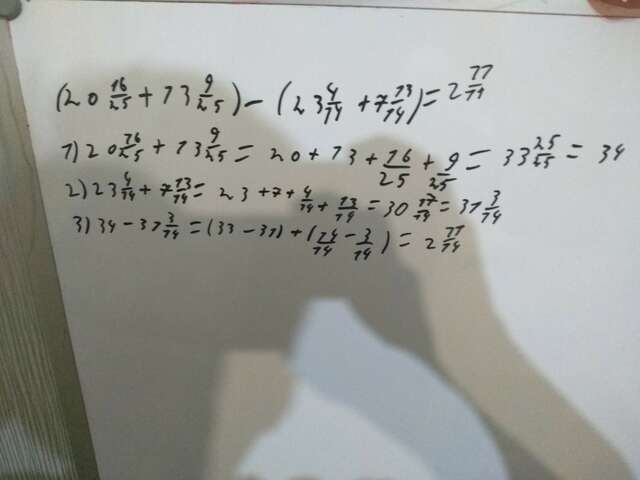 (20 16/25 + 13 9/25) - (23 4/14 + 7 13/14) = 2 11/14
1) 20 16/25 + 13 9/25 = 20 + 13 + 16/25 + 9/25 = 33 25/25 = 34
2) 23 4/14 + 7 13/14 = 23 + 7 + 4/14 + 13/14 = 30 17/14 = 31 3/14
3) 34 - 31 3/14 = (33 - 31) + (14/14 - 3/14) = 2 11/14